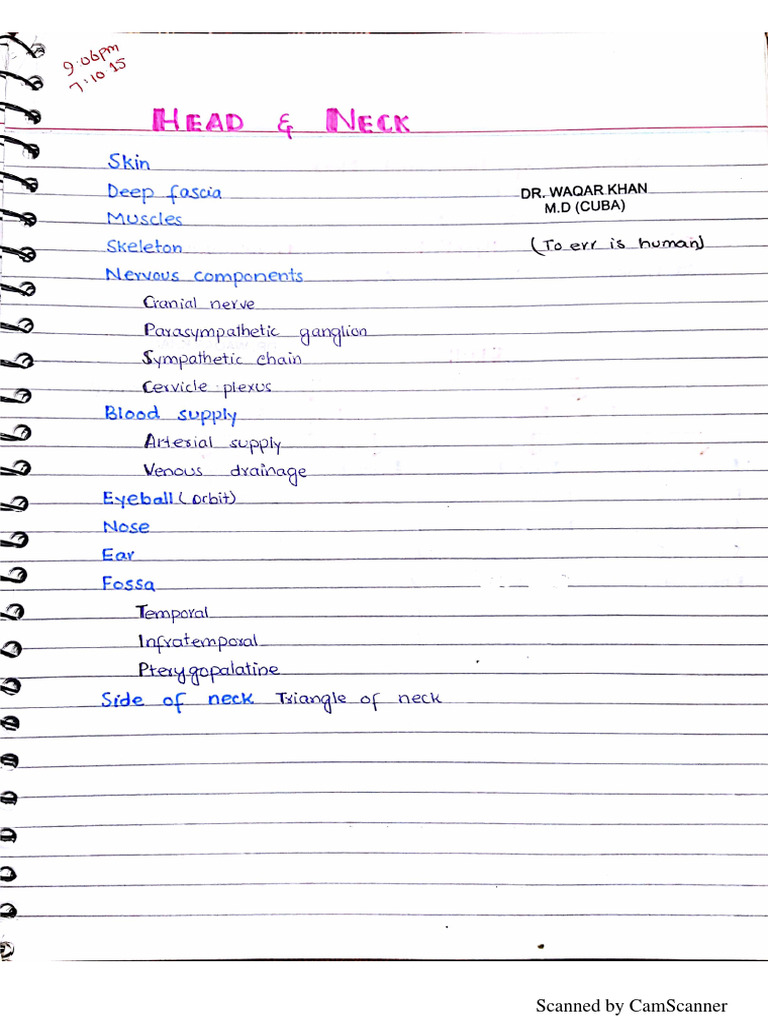 9:06pm
7:10:15
HEAD & NECK
Skin
Deep fascia
DR. WAQAR KHAN
Muscles
M.D (CUBA)
Skeleton
(To err is human)
Nervous components
Cranial nerve
Parasympathetic ganglion
Sympathetic chain
Cervicle plexus
Blood supply
Arterial supply
Venous drainage
Eyeball (Orbit)
Nose
Ear
Fossa
Temporal
Infratemporal
Pterygopalatine
Side of neck Triangle of neck
Scanned by CamScanner